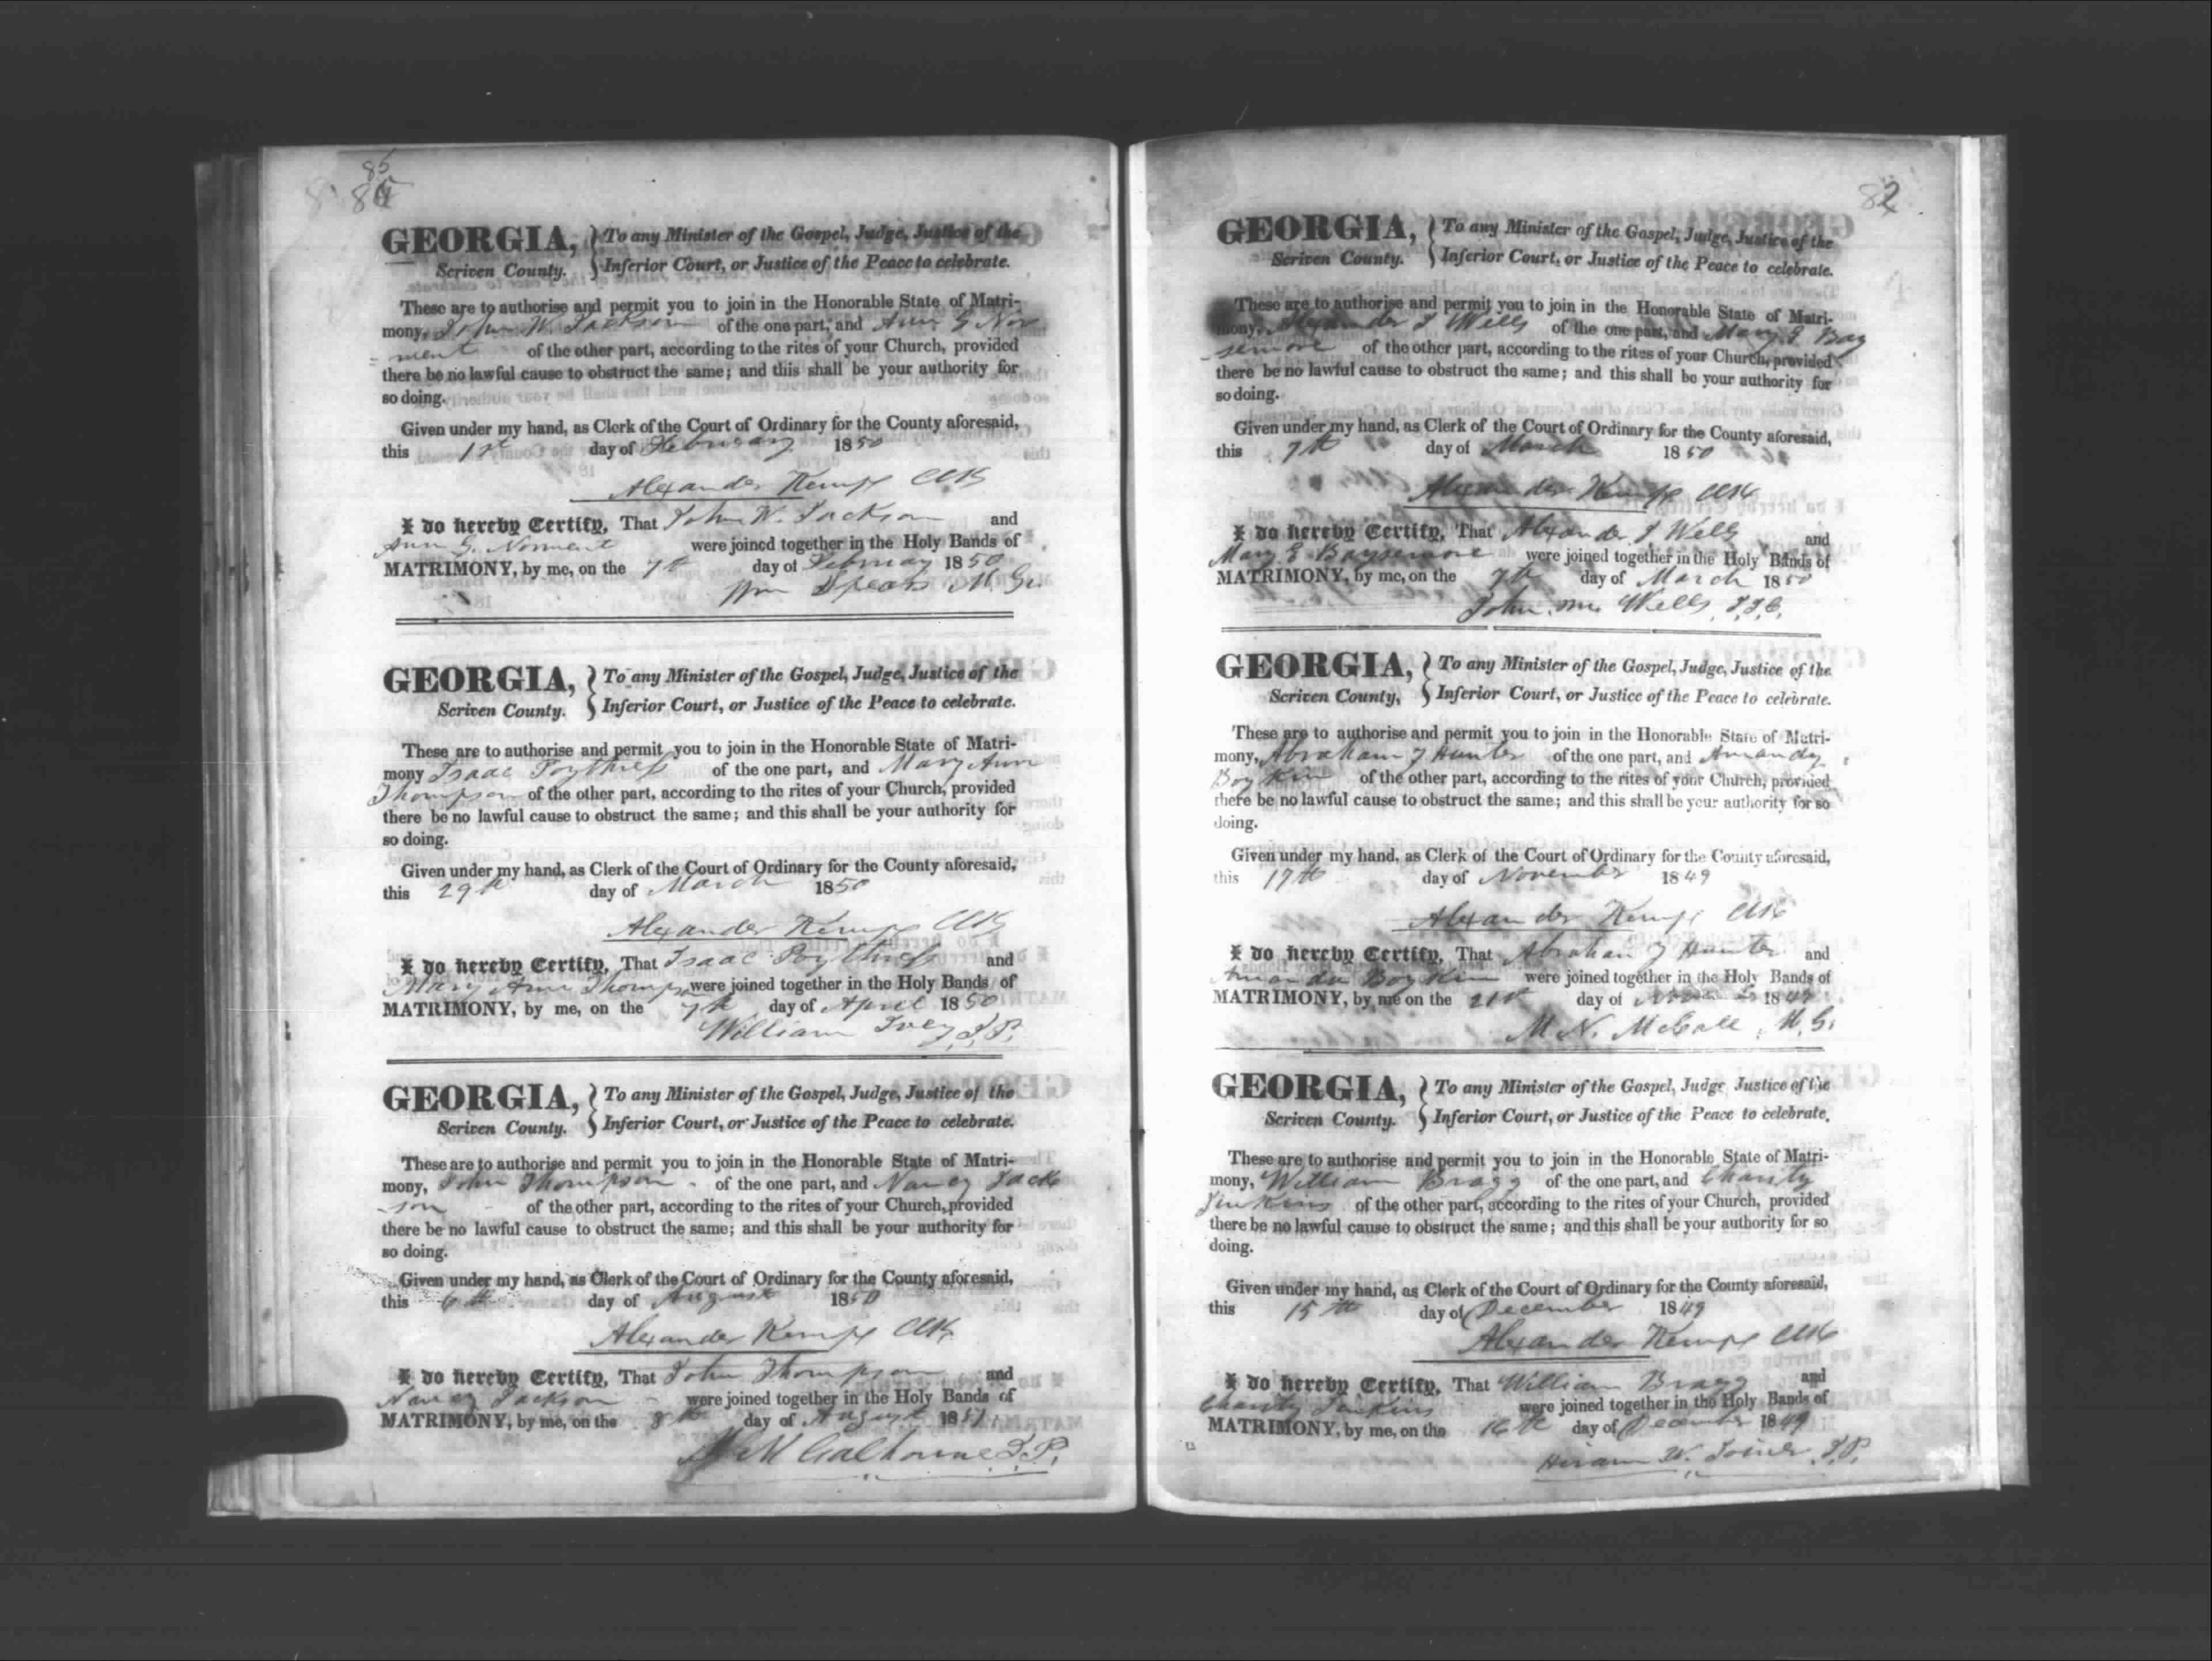 85
GEORGIA, } To any Minister of the Gospel, Judge, Justice of the
Scriven County. } Inferior Court, or Justice of the Peace to celebrate.
These are to authorise and permit you to join in the Honorable State of Matri-
mony, John W. Jackson of the one part, and Ann G Nor
-ment of the other part, according to the rites of your Church, provided
there be no lawful cause to obstruct the same; and this shall be your authority for
so doing.
Given under my hand, as Clerk of the Court of Ordinary for the County aforesaid,
this 1st day of February 1850
Alexander Kemp Clk
I do hereby Certify, That John W. Jackson and
Ann G. Norment were joined together in the Holy Bands of
MATRIMONY, by me, on the 7th day of February 1850
Wm Spears M. G.
GEORGIA, } To any Minister of the Gospel, Judge, Justice of the
Scriven County. } Inferior Court, or Justice of the Peace to celebrate.
These are to authorise and permit you to join in the Honorable State of Matri-
mony Isaac Poythress of the one part, and Mary Ann
Thompson of the other part, according to the rites of your Church, provided
there be no lawful cause to obstruct the same; and this shall be your authority for
so doing.
Given under my hand, as Clerk of the Court of Ordinary for the County aforesaid,
this 29th day of March 1850
Alexander Kemp Clk
I do hereby Certify, That Isaac Poythress and
Mary Ann Thompson were joined together in the Holy Bands of
MATRIMONY, by me, on the 7th day of April 1850
William Ivey J.P.
GEORGIA, } To any Minister of the Gospel, Judge, Justice of the
Scriven County. } Inferior Court, or Justice of the Peace to celebrate.
These are to authorise and permit you to join in the Honorable State of Matri-
mony, John Thompson of the one part, and Nancy Jack
-son of the other part, according to the rites of your Church, provided
there be no lawful cause to obstruct the same; and this shall be your authority for
so doing.
Given under my hand, as Clerk of the Court of Ordinary for the County aforesaid,
this 6th day of August 1850
Alexander Kemp Clk
I do hereby Certify, That John Thompson and
Nancy Jackson were joined together in the Holy Bands of
MATRIMONY, by me, on the 8th day of August
M Calhoune J.P.
82
GEORGIA, } To any Minister of the Gospel, Judge, Justice of the
Scriven County. } Inferior Court, or Justice of the Peace to celebrate.
These are to authorise and permit you to join in the Honorable State of Matri-
mony, Alexander J Wells of the one part, and Mary E Bay
-semore of the other part, according to the rites of your Church, provided
there be no lawful cause to obstruct the same; and this shall be your authority for
so doing.
Given under my hand, as Clerk of the Court of Ordinary for the County aforesaid,
this 7th day of March 1850
Alexander Kemp Clk
I do hereby Certify, That Alxander J Wells and
Mary E Baysemore were joined together in the Holy Bands of
MATRIMONY, by me, on the 7th day of March 1850
John Wells J.I.C.
GEORGIA, } To any Minister of the Gospel, Judge, Justice of the
Scriven County, } Inferior Court, or Justice of the Peace to celebrate.
These are to authorise and permit you to join in the Honorable State of Matri-
mony, Abraham J Hunter of the one part, and Amandy
Boykin of the other part, according to the rites of your Church, provided
there be no lawful cause to obstruct the same; and this shall be your authority for so
doing.
Given under my hand, as Clerk of the Court of Ordinary for the County aforesaid,
this 17th day of November 1849
Alexander Kemp Clk
I do hereby Certify, That Abraham J Hunter and
Amanda Boykin were joined together in the Holy Bands of
MATRIMONY, by me on the 21st day of
M N. McCall M. G.
GEORGIA, } To any Minister of the Gospel, Judge Justice of the
Scriven County. } Inferior Court, or Justice of the Peace to celebrate.
These are to authorise and permit you to join in the Honorable State of Matri-
mony, William Bragg of the one part, and Charity
Jinkins of the other part, according to the rites of your Church, provided
there be no lawful cause to obstruct the same; and this shall be your authority for so
doing.
Given under my hand, as Clerk of the Court of Ordinary for the County aforesaid,
this 15th day of December 1849
Alexander Kemp Clk
I do hereby Certify, That William Bragg and
Charity Jinkins were joined together in the Holy Bands of
MATRIMONY, by me, on the 16th day of December 1849
Hiram W. Joiner J.P.